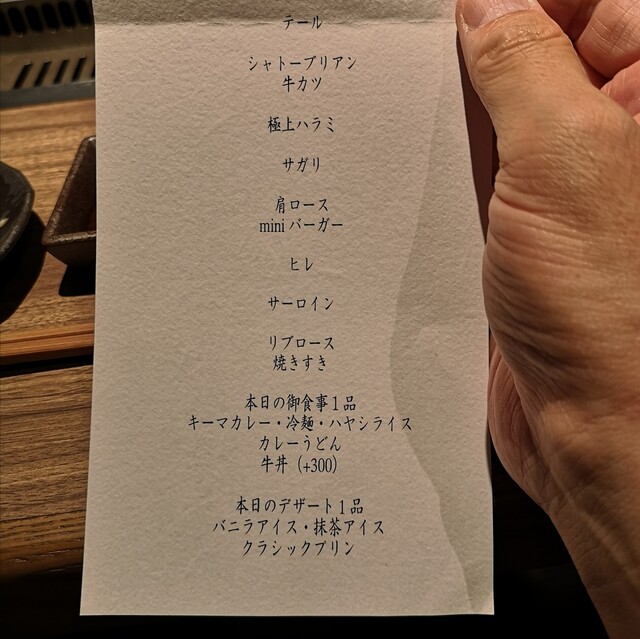 テール
シャトーブリアン
牛カツ
極上ハラミ
サガリ
肩ロース
mini バーガー
ヒレ
サーロイン
リブロース
焼きすき
本日の御食事1品
キーマカレー・冷麺・ハヤシライス
カレーうどん
牛丼（+300）
本日のデザート1品
バニラアイス・抹茶アイス
クラシックプリン